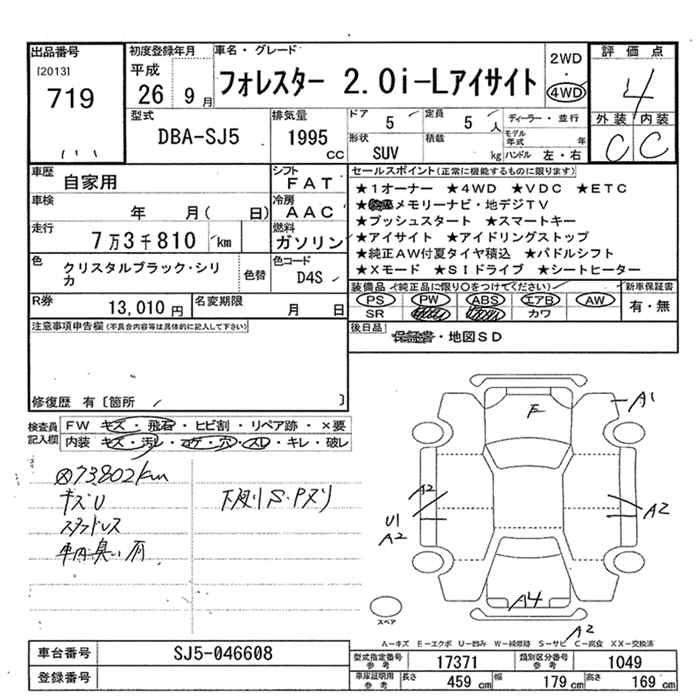 出品番号
[2013]
719
初度登録年月
平成
26年9月
車名・グレード
フォレスター 2.0i-Lアイサイト
2WD
・
4WD
評価点
4
外装 内装
C C
型式
DBA-SJ5
排気量
1995
cc
ドア
5
定員
5 人
形状
SUV
積載
kg
ディーラー・並行
モデル年式 年
ハンドル 左・右
車歴
自家用
シフト
FAT
車検
年 月( 日)
冷房
AAC
走行
7万3千810 km
燃料
ガソリン
色
クリスタルブラック・シリカ
色替
色コード
D4S
R券
13,010円
名変期限
月 日
セールスポイント(正常に機能するものに限ります)
★1オーナー ★4WD ★VDC ★ETC
メモリーナビ・地デジTV
★プッシュスタート ★スマートキー
★アイサイト ★アイドリングストップ
★純正AW付夏タイヤ積込 ★パドルシフト
★Xモード ★SIドライブ ★シートヒーター
装備品(純正品に限り○をつけてください)
PS PW ABS エアB AW
SR カワ
新車保証書
有・無
後日品
保証書・地図SD
注意事項申告欄(不具合内容等は具体的に記入して下さい)
修復歴 有〔箇所 〕
検査員記入欄
FW キズ・飛石・ヒビ割・リペア跡・×要
内装 キズ・汚レ・コゲ・穴・スレ・キレ・破レ
73802km
キズU
スタッドレス
車内臭い有
下廻りS・Pヌリ
F
A1
A2
U1
A2
A2
A4
A2
スペア
A-キズ E-エクボ U-凹み W-補修跡 S-サビ C-腐食 XX-交換済
車台番号
SJ5-046608
登録番号
型式指定番号
参考
17371
類別区分番号
参考
1049
車庫証明用
参考
長さ 459 cm
幅 179 cm
高さ 169 cm